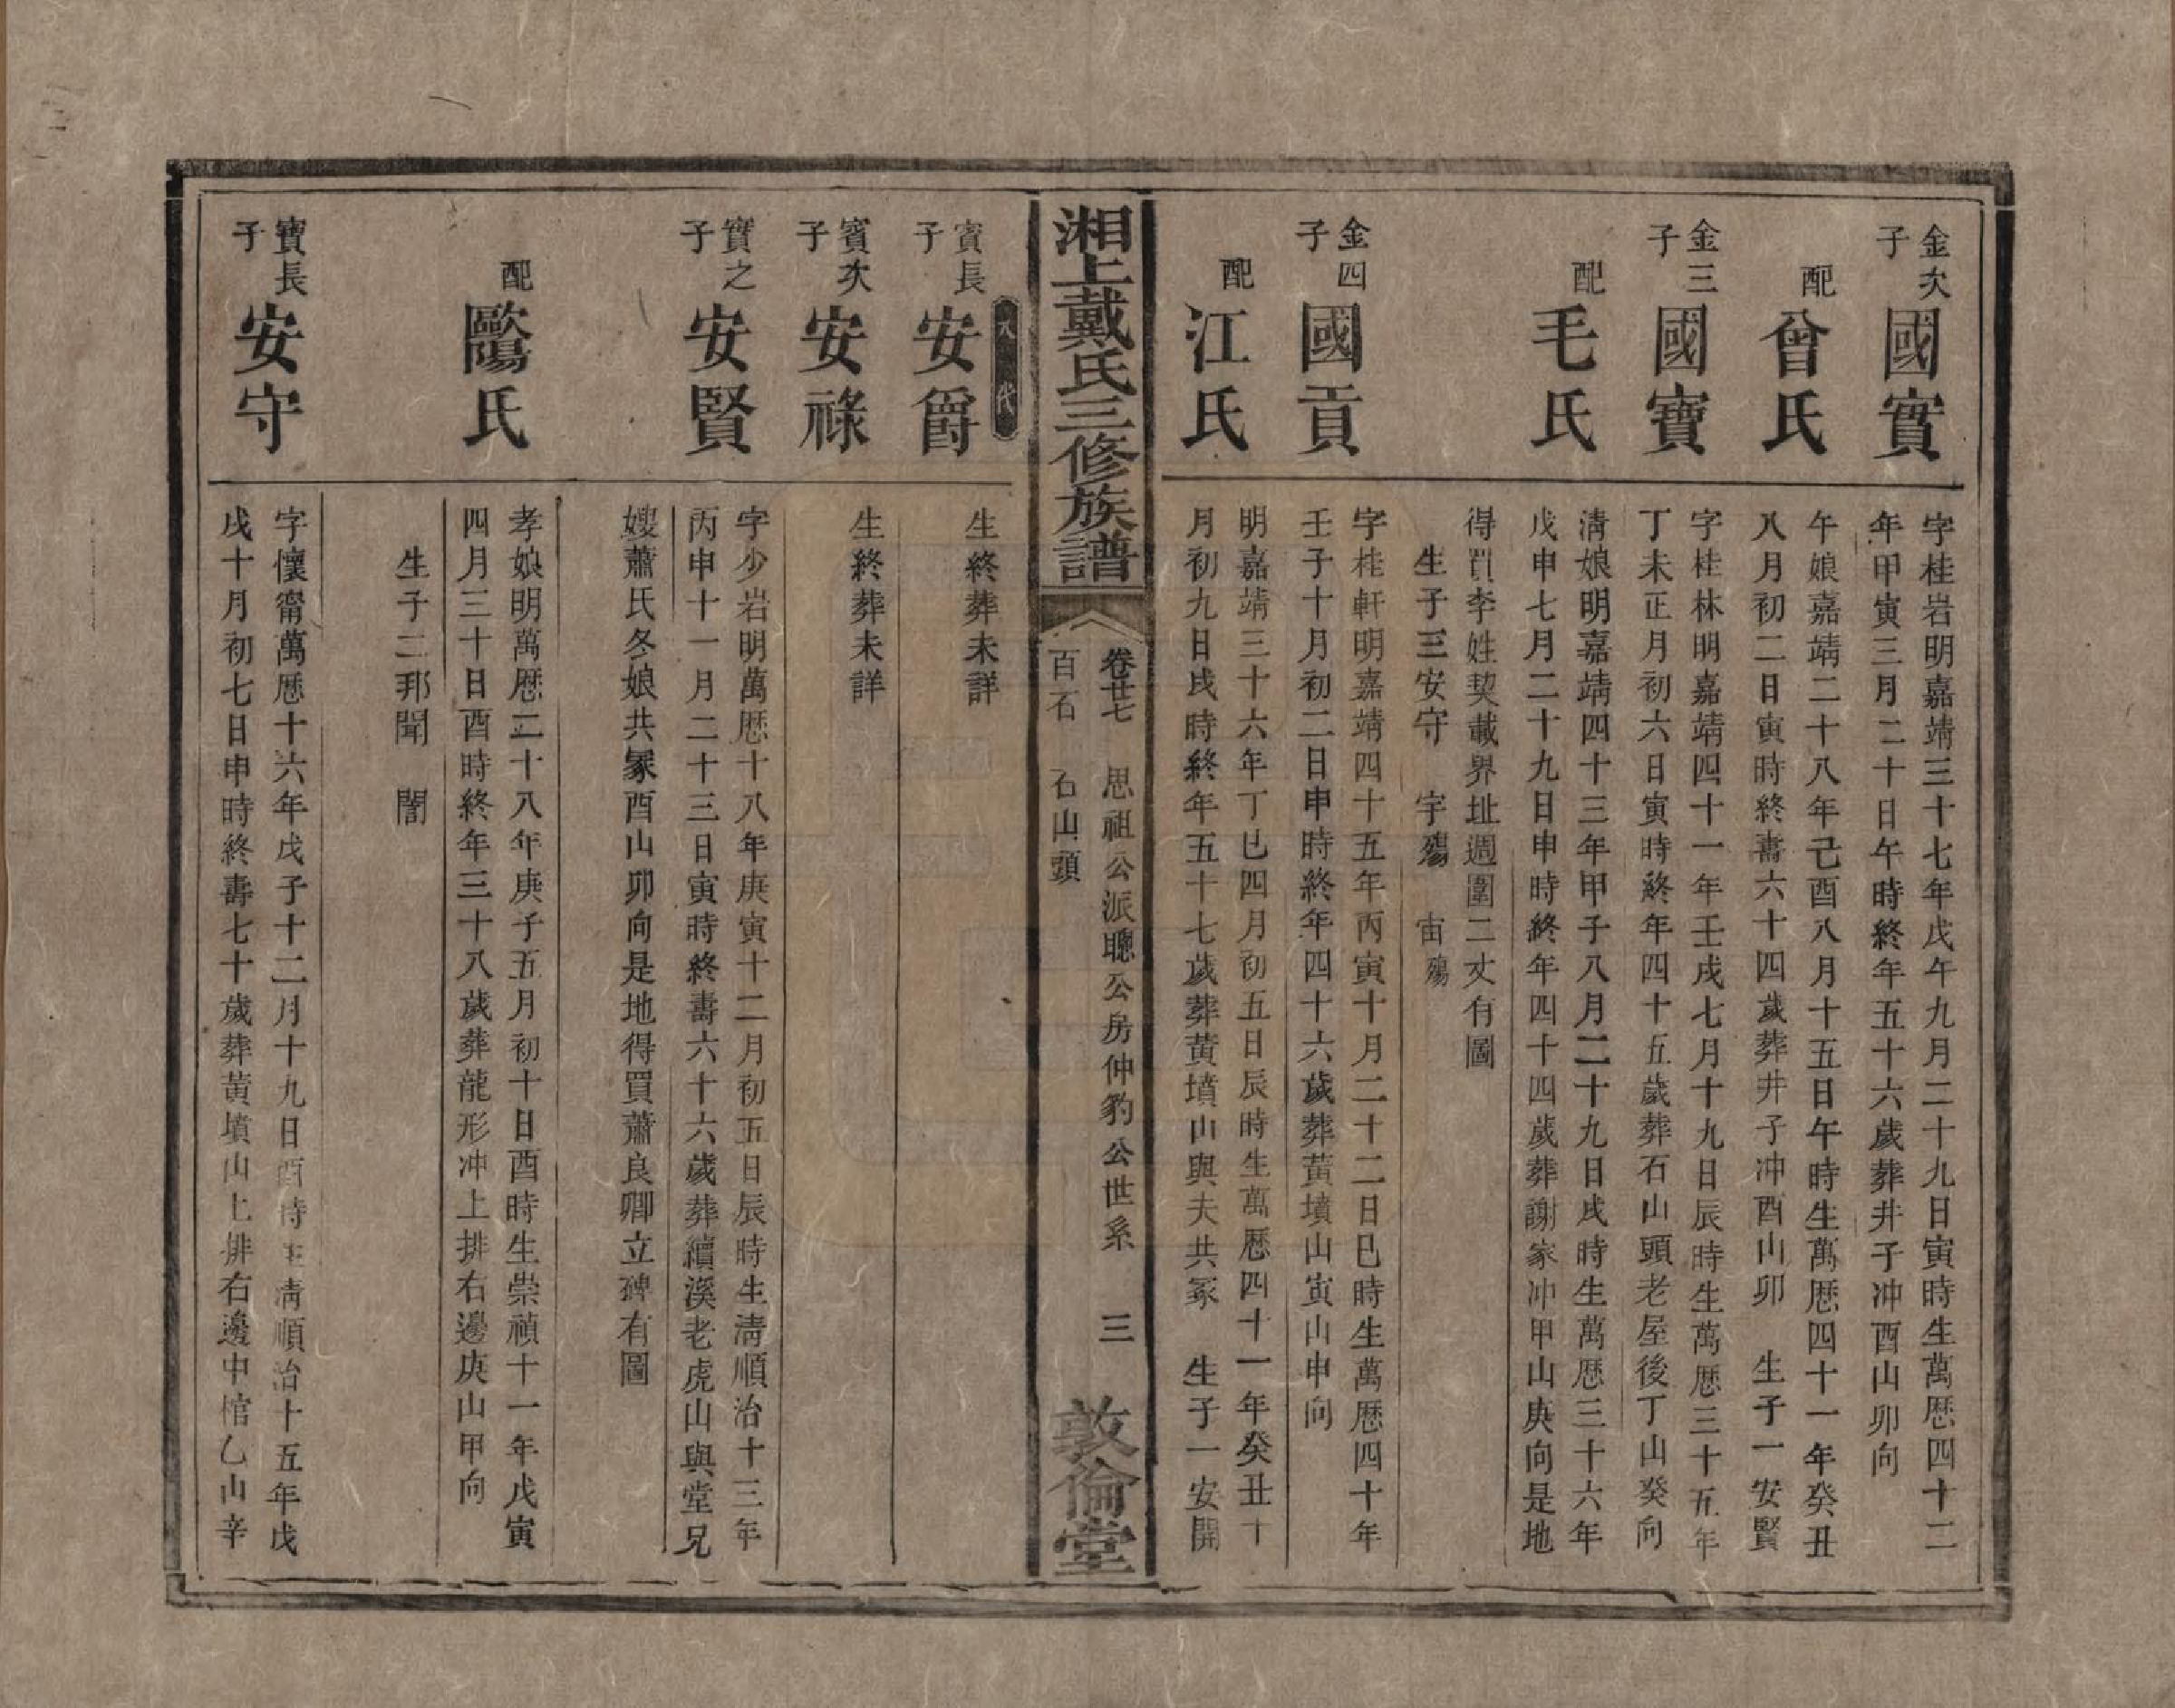 金次
子
國實
字桂岩明嘉靖三十七年戊午九月二十九日寅時生萬厯四十二
年甲寅三月二十日午時終年五十六歲葬井子冲酉山卯向
配
曾氏
午娘嘉靖二十八年己酉八月十五日午時生萬厯四十一年癸丑
八月初二日寅時終壽六十四歲葬井子冲酉山卯 生子一安賢
金三
子
國寶
字桂林明嘉靖四十一年壬戌七月十九日辰時生萬厯三十五年
丁未正月初六日寅時終年四十五歲葬石山頭老屋後丁山癸向
配
毛氏
清娘明嘉靖四十三年甲子八月二十九日戌時生萬厯三十六年
戊申七月二十九日申時終年四十四歲葬謝家冲甲山庚向是地
得買李姓契載界址週圍二丈有圖
生子三安守 宇殤 宙殤
金四
子
國貢
字桂軒明嘉靖四十五年丙寅十月二十二日巳時生萬厯四十年
壬子十月初二日申時終年四十六歲葬黃墳山寅山申向
配
江氏
明嘉靖三十六年丁巳四月初五日辰時生萬厯四十一年癸丑十
月初九日戌時終年五十七歲葬黃墳山與夫共冢 生子一安開
湘上戴氏三修族譜
卷廿七 思祖公派聰公房仲豹公世系 三
百石 石山頭
敦倫堂
八代
賓長
子
安爵
生終葬未詳
賓次
子
安祿
生終葬未詳
實之
子
安賢
字少岩明萬厯十八年庚寅十二月初五日辰時生清順治十三年
丙申十一月二十三日寅時終壽六十六歲葬續溪老虎山與堂兄
嫂蕭氏冬娘共冢酉山卯向是地得買蕭良卿立碑有圖
配
歐陽氏
孝娘明萬厯二十八年庚子五月初十日酉時生崇禎十一年戊寅
四月三十日酉時終年三十八歲葬龍形冲上排右邊庚山甲向
生子二邦聞 闇
寶長
子
安守
字懷甯萬厯十六年戊子十二月十九日酉時生清順治十五年戊
戌十月初七日申時終壽七十歲葬黃墳山上排右邊中棺乙山辛